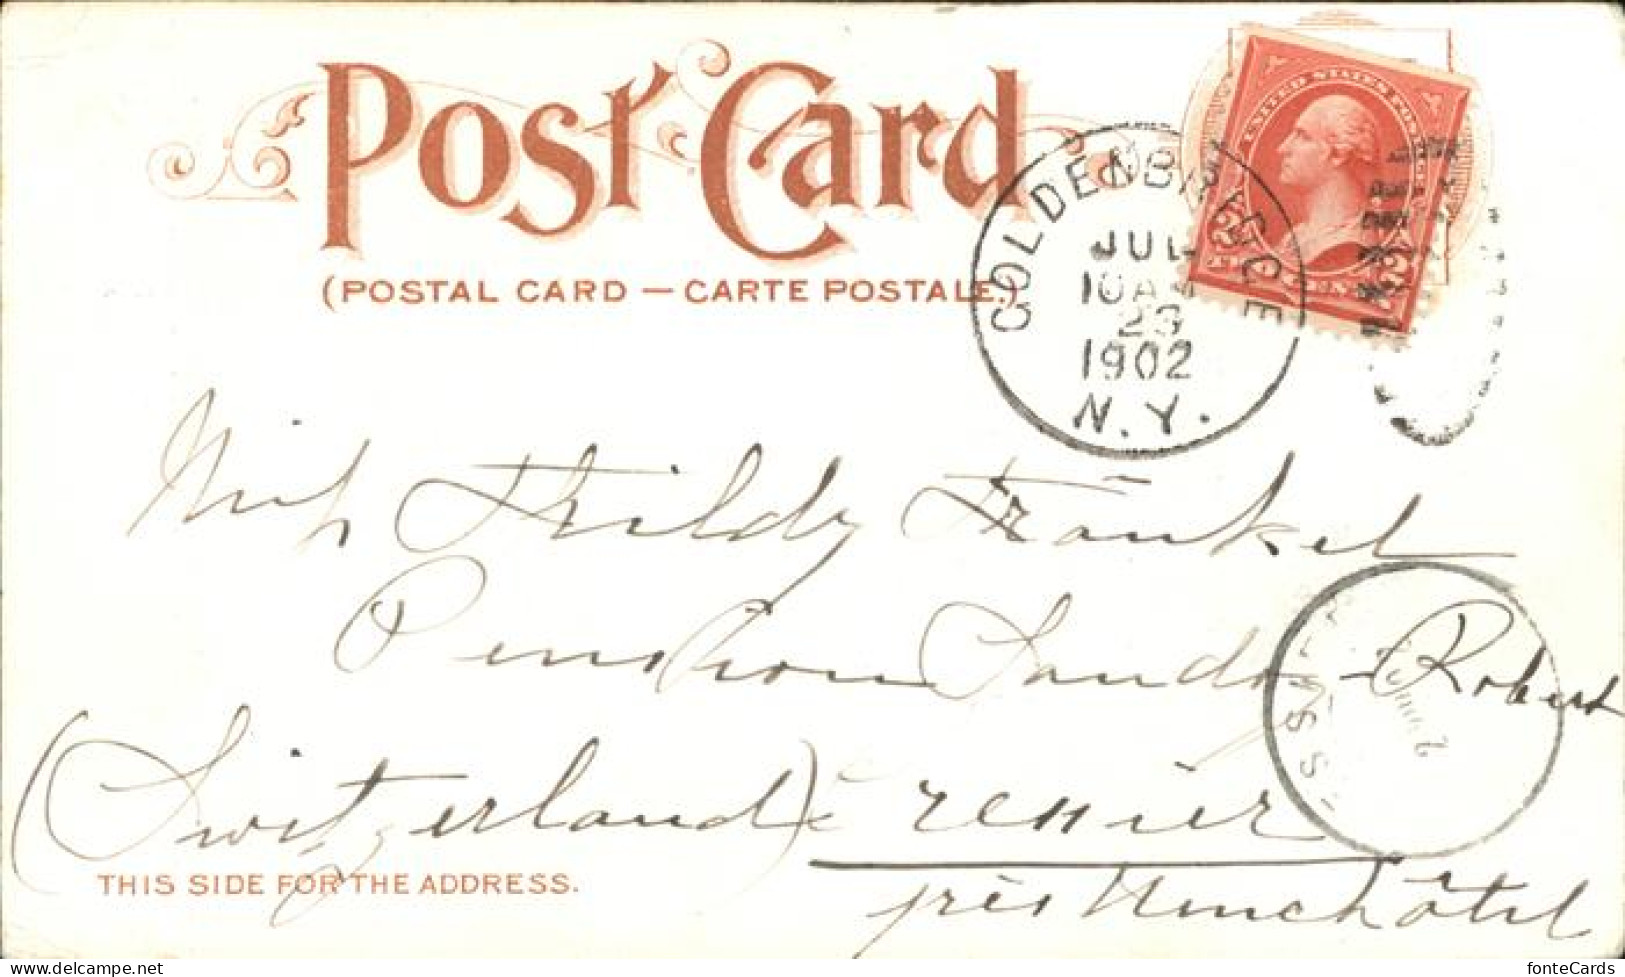 POST CARD
(POSTAL CARD — CARTE POSTALE.)
UNITED STATES POSTAGE
2 TWO CENTS 2
GOLDEN'S BRIDGE
JUL
10AM
23
1902
N.Y.
Miss Hildy Fränkel
Pension Sandoz-Robert
(Switzerland)
près Neuchâtel
THIS SIDE FOR THE ADDRESS.
fonteCards